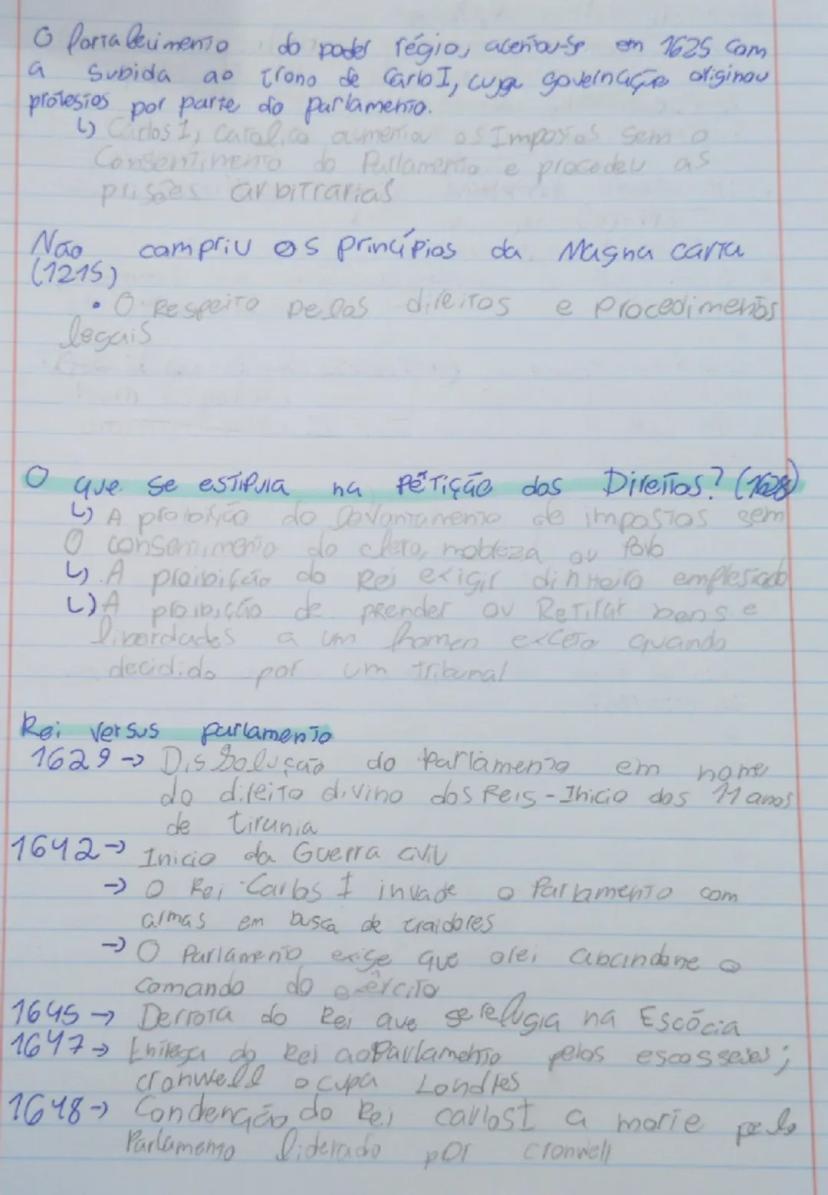 O Fortalecimento do poder régio, acentou-se em 1625 com
a subida ao trono de Carlo I, cuja governação originou
protestos por parte do parlamento.
↳ Carlos I, Catolico aumentou os Impostos sem o
Consentimento do Parlamento e procedeu as
prisões arbitrarias
Não campriu os principios da Magna carta
(1215)
• O Respeito pelos direitos e Procedimentos
legais
O que se estipula na Pétição dos Direitos? (1628)
↳ A proibição do levantamento de impostos sem
O consentimento do clero, nobleza ou Povo
↳ A proibição do Rei exigir dinheiro emprestado
↳ A proibição de prender ou Retirar bens e
liberdades a um homem exceto quando
decidido por um tribunal
Rei versus parlamento
1629 → Dissolução do Parlamento em nome
do direito divino dos Reis - Inicio dos 11 anos
de tirania
1642 → Inicio da Guerra civil
→ O Rei Carlos I invade o Parlamento com
armas em busca de traidores
→ O Parlamento exige que o rei abandone o
comando do exército
1645 → Derrota do Rei que se refugia na Escócia
1647 → Entrega do Rei ao Parlamento pelos escosseses;
cronwell ocupa Londres
1648 → Condenção do Rei carlos I a morte pelo
Parlamento liderado por cronwell